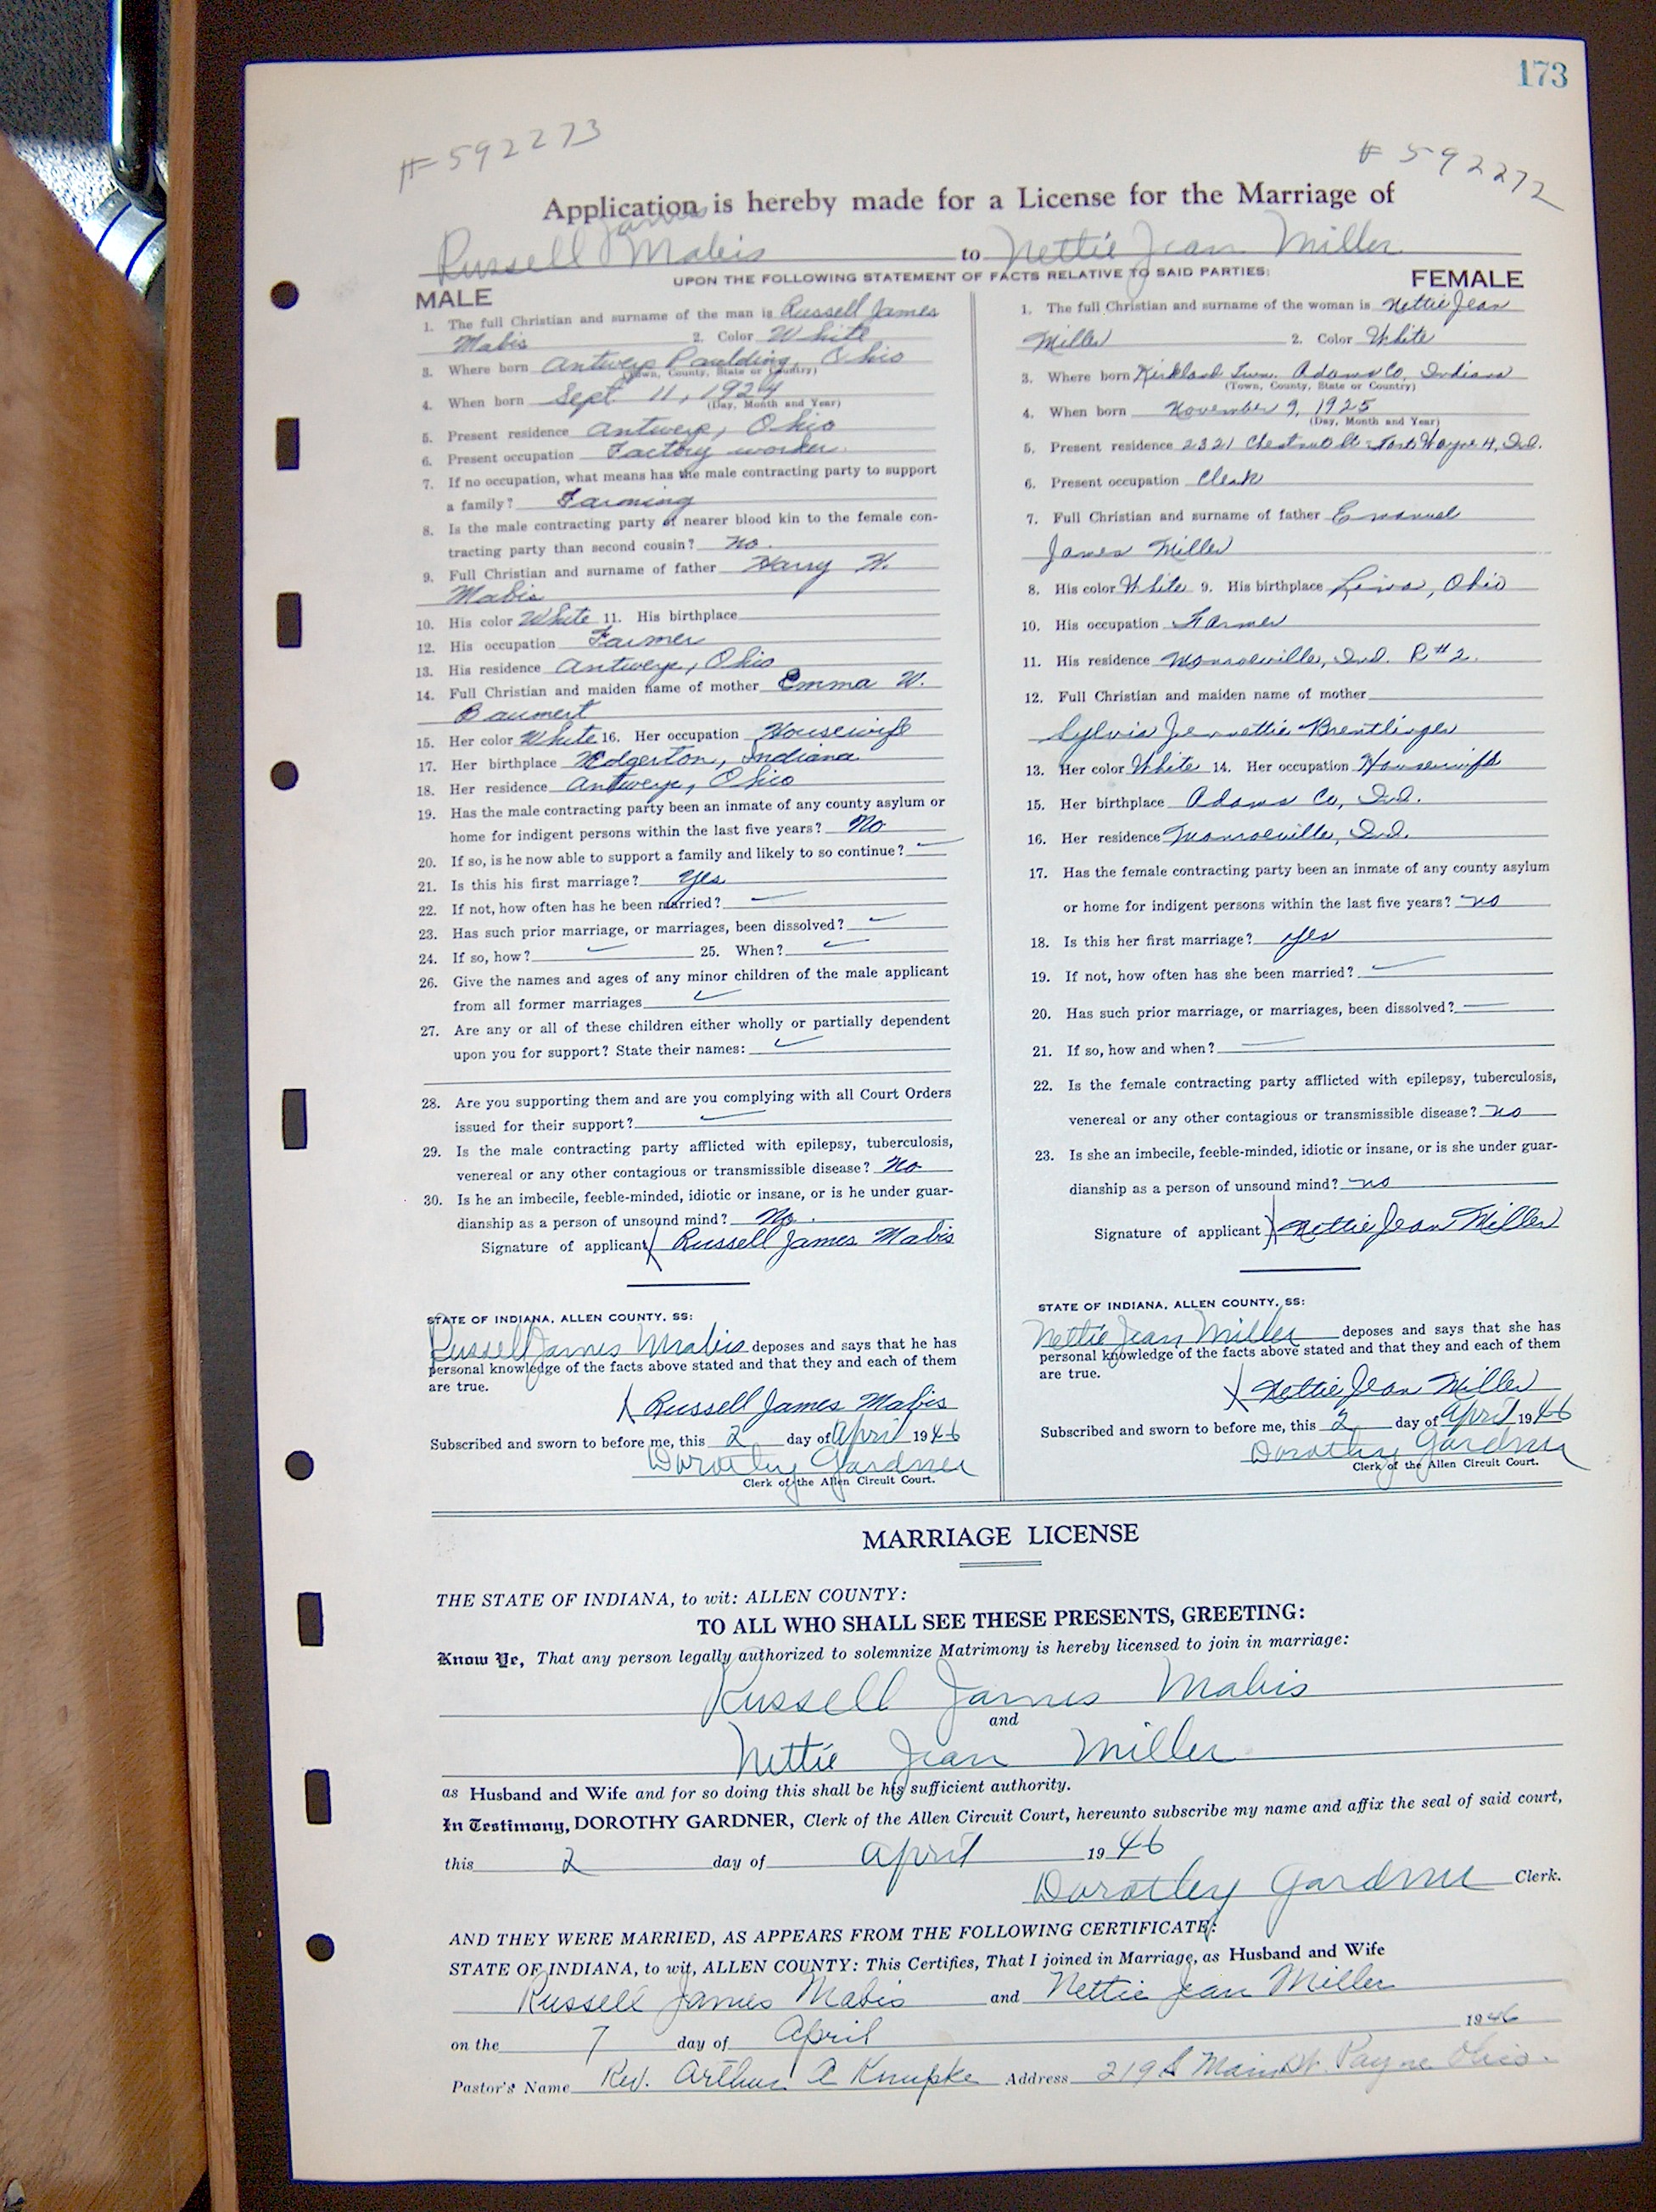 173
# 592273
# 592272
Application is hereby made for a License for the Marriage of
James
Russell Mabis to Nettie Jean Miller
UPON THE FOLLOWING STATEMENT OF FACTS RELATIVE TO SAID PARTIES:
MALE
1. The full Christian and surname of the man is Russell James
Mabis 2. Color White
3. Where born Antwerp Paulding, Ohio
(Town, County, State or Country)
4. When born Sept. 11, 1924
(Day, Month and Year)
5. Present residence Antwerp, Ohio
6. Present occupation Factory worker.
7. If no occupation, what means has the male contracting party to support
a family? Farming
8. Is the male contracting party of nearer blood kin to the female con-
tracting party than second cousin? No.
9. Full Christian and surname of father Harry H.
Mabis
10. His color White 11. His birthplace
12. His occupation Farmer
13. His residence Antwerp, Ohio
14. Full Christian and maiden name of mother Emma W.
Baumert
15. Her color White 16. Her occupation Housewife
17. Her birthplace Edgerton, Indiana
18. Her residence Antwerp, Ohio
19. Has the male contracting party been an inmate of any county asylum or
home for indigent persons within the last five years? No
20. If so, is he now able to support a family and likely to so continue?
21. Is this his first marriage? Yes
22. If not, how often has he been married?
23. Has such prior marriage, or marriages, been dissolved?
24. If so, how? 25. When?
26. Give the names and ages of any minor children of the male applicant
from all former marriages
27. Are any or all of these children either wholly or partially dependent
upon you for support? State their names:
28. Are you supporting them and are you complying with all Court Orders
issued for their support?
29. Is the male contracting party afflicted with epilepsy, tuberculosis,
venereal or any other contagious or transmissible disease? No
30. Is he an imbecile, feeble-minded, idiotic or insane, or is he under guar-
dianship as a person of unsound mind? No.
Signature of applicant Russell James Mabis
STATE OF INDIANA, ALLEN COUNTY, SS:
Russell James Mabis deposes and says that he has
personal knowledge of the facts above stated and that they and each of them
are true.
X Russell James Mabis
Subscribed and sworn to before me, this 2 day of April 1946
Dorothy Gardner
Clerk of the Allen Circuit Court.
FEMALE
1. The full Christian and surname of the woman is Nettie Jean
Miller 2. Color White
3. Where born Kirkland Twn. Adams Co, Indiana
(Town, County, State or Country)
4. When born November 9, 1925
(Day, Month and Year)
5. Present residence 2321 Chestnut St. Fort Wayne 4, Ind.
6. Present occupation Clerk
7. Full Christian and surname of father Emanuel
James Miller
8. His color White 9. His birthplace Lima, Ohio
10. His occupation Farmer
11. His residence Monroeville, Ind. R#2.
12. Full Christian and maiden name of mother
Sylvia Jennettie Brentlinger
13. Her color White 14. Her occupation Housewife
15. Her birthplace Adams Co, Ind.
16. Her residence Monroeville, Ind.
17. Has the female contracting party been an inmate of any county asylum
or home for indigent persons within the last five years? no
18. Is this her first marriage? yes
19. If not, how often has she been married?
20. Has such prior marriage, or marriages, been dissolved?
21. If so, how and when?
22. Is the female contracting party afflicted with epilepsy, tuberculosis,
venereal or any other contagious or transmissible disease? no
23. Is she an imbecile, feeble-minded, idiotic or insane, or is she under guar-
dianship as a person of unsound mind? no
Signature of applicant X Nettie Jean Miller
STATE OF INDIANA, ALLEN COUNTY, SS:
Nettie Jean Miller deposes and says that she has
personal knowledge of the facts above stated and that they and each of them
are true.
X Nettie Jean Miller
Subscribed and sworn to before me, this 2 day of April 1946
Dorothy Gardner
Clerk of the Allen Circuit Court.
MARRIAGE LICENSE
THE STATE OF INDIANA, to wit: ALLEN COUNTY:
TO ALL WHO SHALL SEE THESE PRESENTS, GREETING:
Know Ye, That any person legally authorized to solemnize Matrimony is hereby licensed to join in marriage:
Russell James Mabis
and
Nettie Jean Miller
as Husband and Wife and for so doing this shall be his sufficient authority.
In Testimony, DOROTHY GARDNER, Clerk of the Allen Circuit Court, hereunto subscribe my name and affix the seal of said court,
this 2 day of April 1946
Dorothy Gardner Clerk.
AND THEY WERE MARRIED, AS APPEARS FROM THE FOLLOWING CERTIFICATE:
STATE OF INDIANA, to wit, ALLEN COUNTY: This Certifies, That I joined in Marriage, as Husband and Wife
Russell James Mabis and Nettie Jean Miller
on the 7 day of April 1946
Pastor's Name Rev. Arthur A Knupke Address 219 S Main St. Payne Ohio.